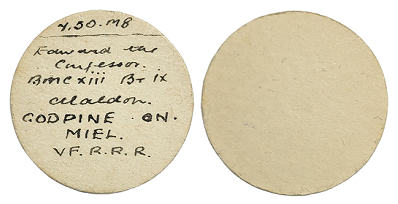 4.50. MB
Edward the
Confessor.
BMC xiii Br IX
Maldon.
GODPINE ON.
MIEL.
VF. R.R.R.